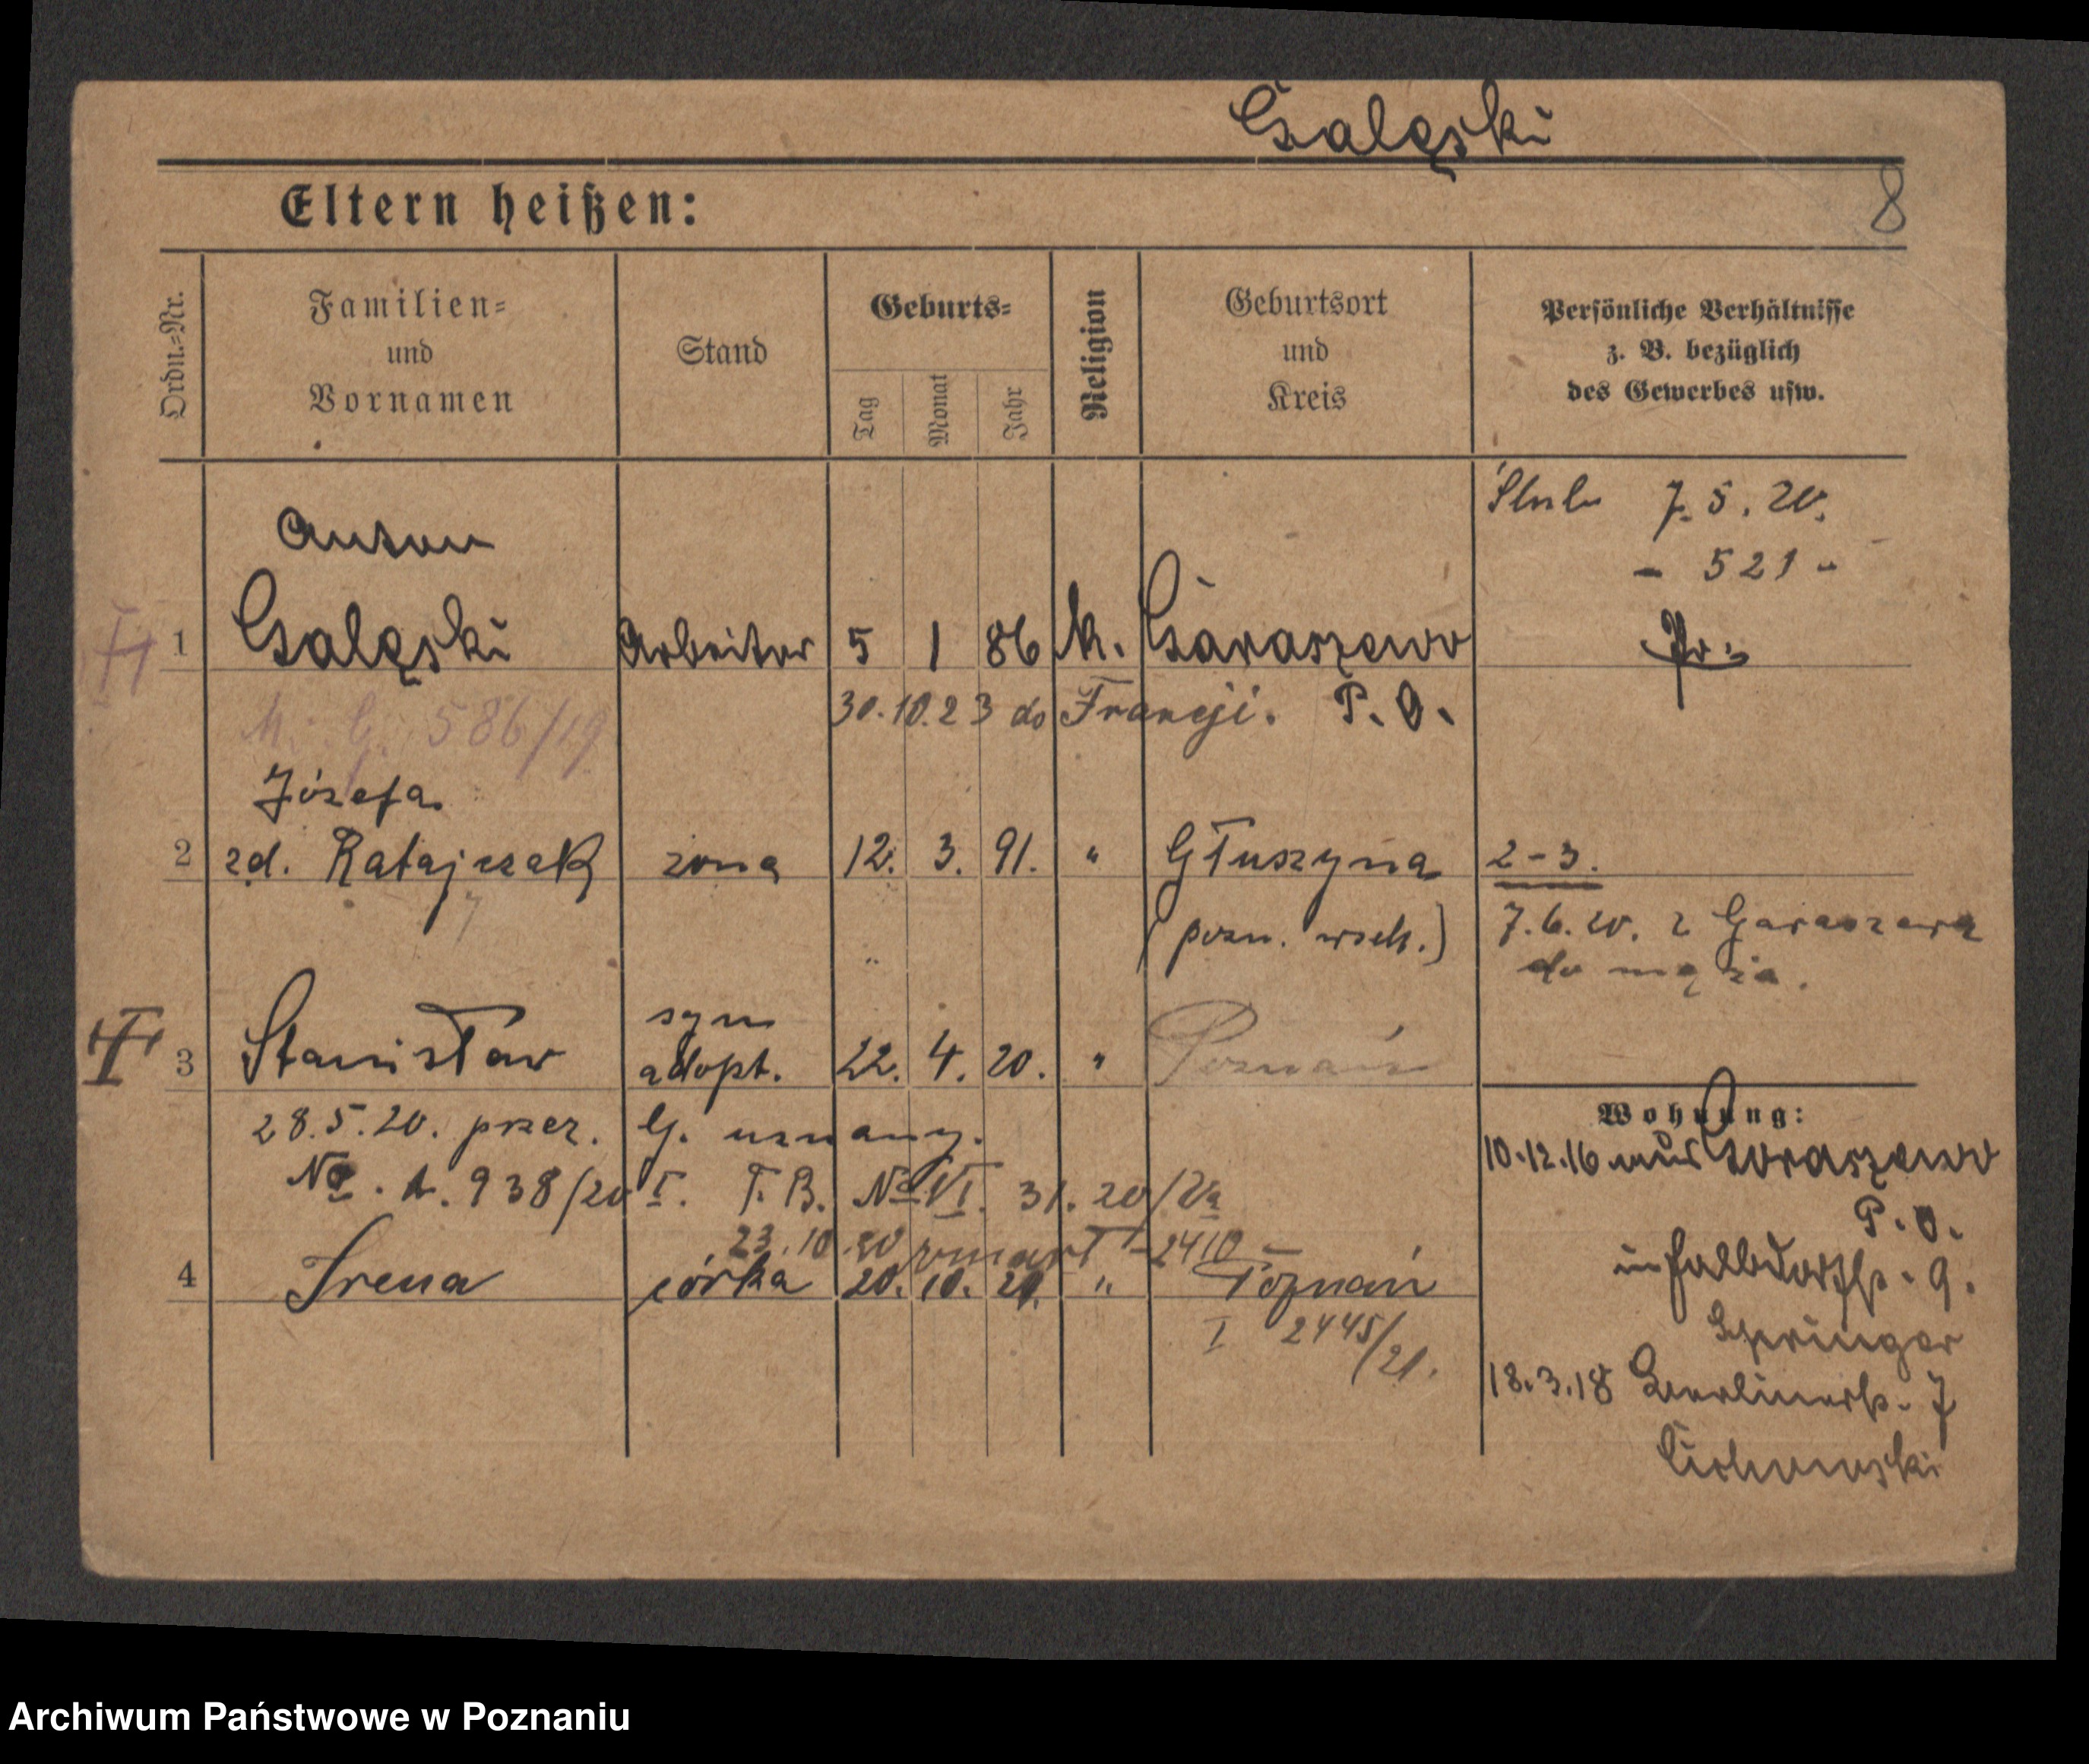 Galęski
Eltern heißen:
8
Ordn.-Nr.
Familien-
und
Vornamen
Stand
Geburts-
Tag
Monat
Jahr
Religion
Geburtsort
und
Kreis
Persönliche Verhältnisse
z. B. bezüglich
des Gewerbes usw.
Ślub 7.5.20.
- 521 -
Anton
1 Galęski Arbeiter 5 1 86 k. Garaszewo Pr.
30.10.23 do Francji. P.O.
M. G. 586/19
Józefa
2 zd. Ratajczak żona 12. 3. 91. " Głuszyna 2-3.
(pozn. wsch.) 7.6.20. z Garaszewa
do męża.
syn
3 Stanisław adopt. 22. 4. 20. " Poznań
28.5.20. przez. G. uznany.
Wohnung:
10.12.16 aus Garaszewo
No. A. 938/20 I. T.B. No VI. 31.20/
P.O.
23.10.20 zmarł -2410-
4 Irena córka 20. 10. 21. " Poznań
in Halbdorfstr. 9.
I 2445/21.
Springer
18.3.18 Berlinerstr. 7
Cichowski
Archiwum Państwowe w Poznaniu